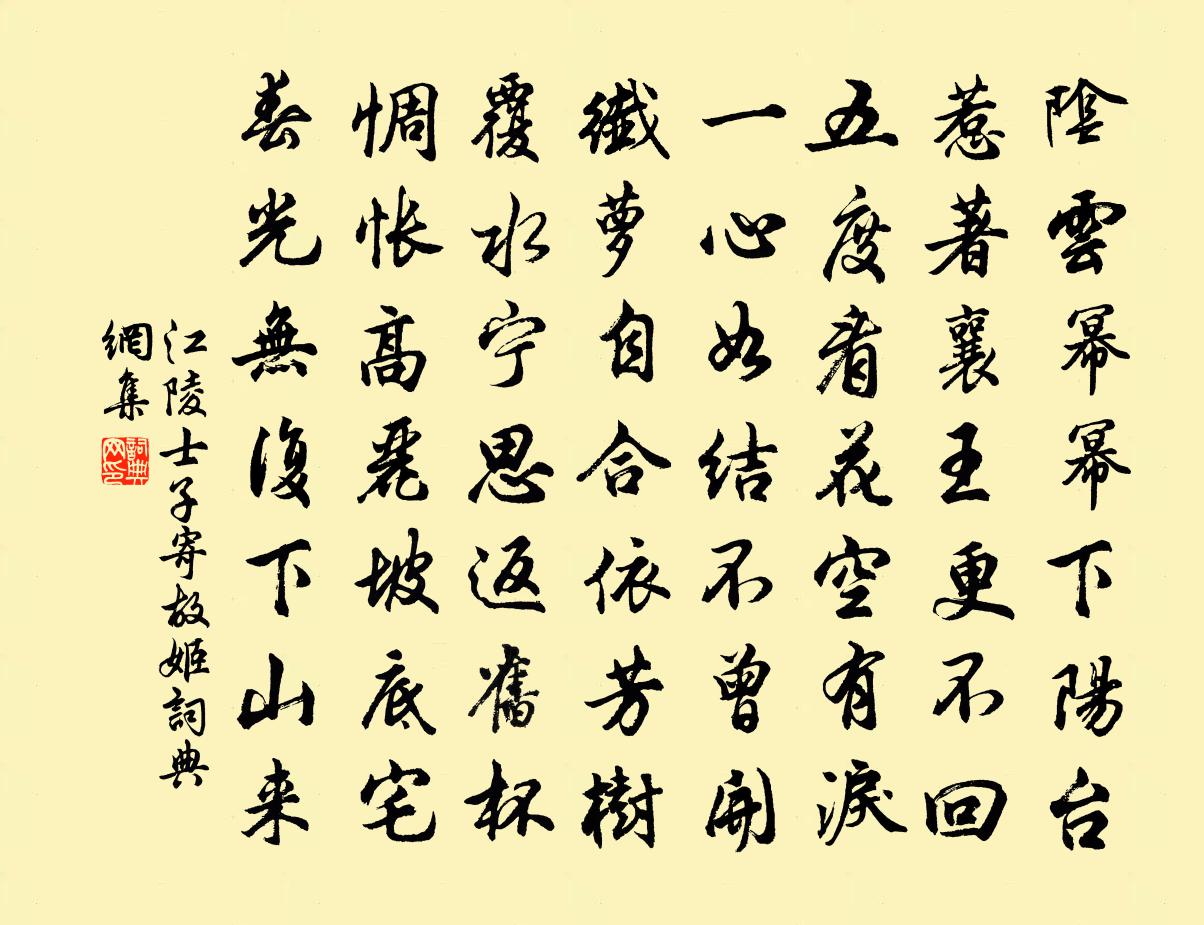 陰雲幂幂下陽台
惹著襄王更不回
五度看花空有淚
一心如结不曾開
纖萝自合依芳樹
覆水宁思返舊杯
惆怅高麗坡底宅
春光無復下山来
江陵士子寄故姬詞典
網集
詞典
网印